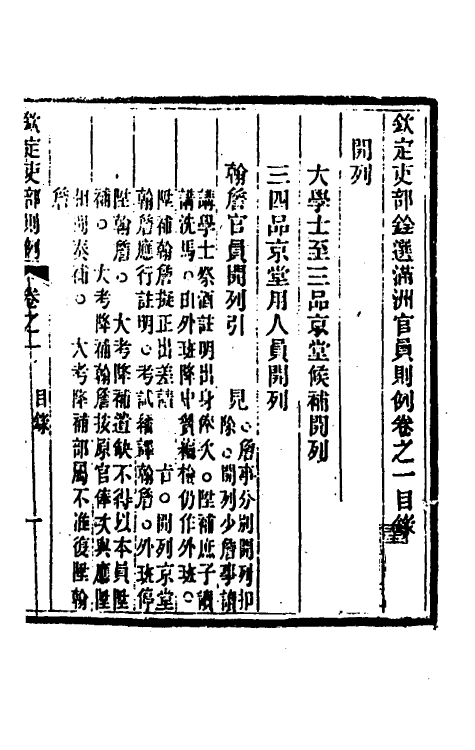 欽定吏部銓選滿洲官員則例卷之一目錄
開列
大學士至三品京堂候補開列
三四品京堂用人員開列
翰詹官員開列引見○詹事分別開列扣
除○開列少詹事讀
講學士祭酒註明出身俸次○陞補庶子讀
講洗馬○由外班降中贊編檢仍作外班○
陞補翰詹擬正出差請旨○開列京堂
翰詹應行註明○考試繙譯翰詹○外班停
陞翰詹○大考降補遺缺不得以本員陞
補○大考降補翰詹按原官俸次與應陞
奏補○大考降補部屬不准復陞翰
詹
欽定吏部則例 卷之一 目錄 一